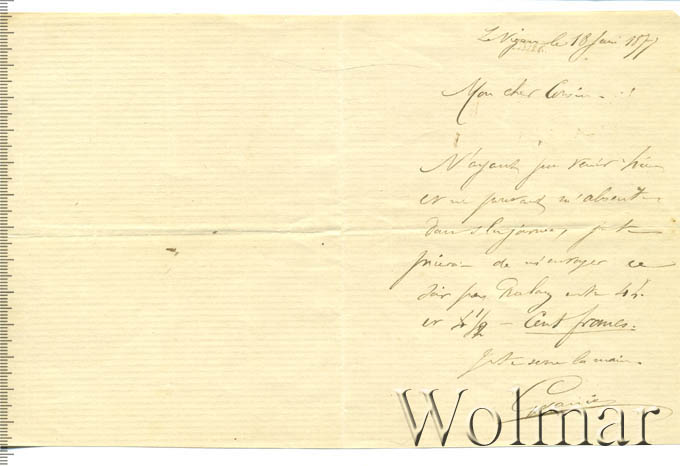 Le Vigan le 18 Juin 1877
Mon cher Cousin
N'ayant pu venir hier
et ne pouvant m'absenter
dans la journée, je te
prierai de m'envoyer ce
soir par entre 4h
et 4 1/2 - Cent francs.
Je te serre la main.
Wolmar